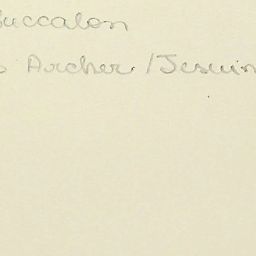 Buccalon
Archer /Jesuin